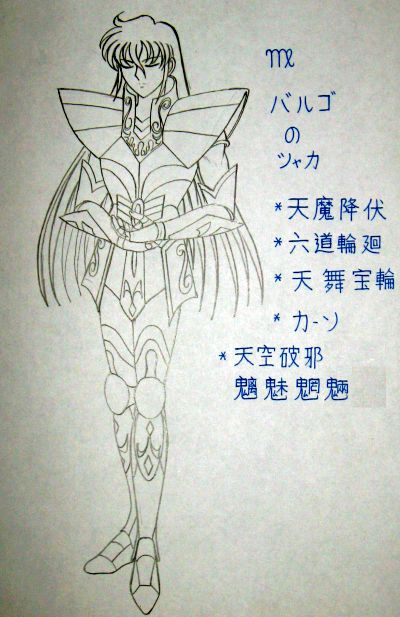 ♍
バルゴ
の
シャカ
*天魔降伏
*六道輪廻
*天舞宝輪
*カーン
*天空破邪
魑魅魍魎